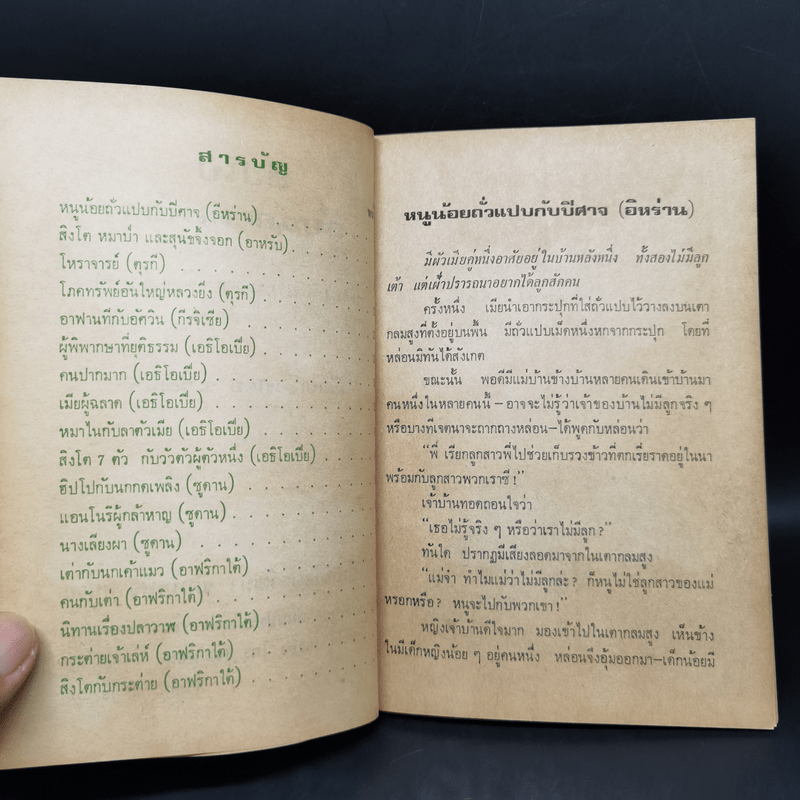 สารบัญ
หนูน้อยถั่วแปบกับปีศาจ (อีหร่าน)
สิงโต หมาป่า และสุนัขจิ้งจอก (อาหรับ) . . .
โหราจารย์ (ตุรกี) . . . . . . . .
โภคทรัพย์อันใหญ่หลวงยิ่ง (ตุรกี) . . . .
อาฟานทีกับอัศวิน (กีรจิเซีย) . . . . .
ผู้พิพากษาที่ยุติธรรม (เอธิโอเปีย) . . . .
คนปากมาก (เอธิโอเปีย) . . . . . . .
เมียผู้ฉลาด (เอธิโอเปีย) . . . . . .
หมาไนกับลาตัวเมีย (เอธิโอเปีย) . . . .
สิงโต 7 ตัว กับวัวตัวผู้ตัวหนึ่ง (เอธิโอเปีย) . .
ฮิปโปกับนกกดเพลิง (ซูดาน) . . . . .
แอนโนรีผู้กล้าหาญ (ซูดาน) . . . . .
นางเลียงผา (ซูดาน) . . . . . . .
เต่ากับนกเค้าแมว (อาฟริกาใต้) . . . .
คนกับเต่า (อาฟริกาใต้) . . . . . .
นิทานเรื่องปลาวาฬ (อาฟริกาใต้) . . . .
กระต่ายเจ้าเล่ห์ (อาฟริกาใต้) . . . . .
สิงโตกับกระต่าย (อาฟริกาใต้) . . . . .
หนูน้อยถั่วแปบกับปีศาจ (อิหร่าน)
มีผัวเมียคู่หนึ่งอาศัยอยู่ในบ้านหลังหนึ่ง ทั้งสองไม่มีลูก
เต้า แต่เฝ้าปรารถนาอยากได้ลูกสักคน
ครั้งหนึ่ง เมียนำเอากระปุกที่ใส่ถั่วแปบไว้วางลงบนเตา
กลมสูงที่ตั้งอยู่บนพื้น มีถั่วแปบเม็ดหนึ่งหกจากกระปุก โดยที่
หล่อนมิทันได้สังเกต
ขณะนั้น พอดีมีแม่บ้านข้างบ้านหลายคนเดินเข้าบ้านมา
คนหนึ่งในหลายคนนี้–อาจจะไม่รู้ว่าเจ้าของบ้านไม่มีลูกจริง ๆ
หรือบางทีเจตนาจะถากถางหล่อน–ได้พูดกับหล่อนว่า
"พี่ เรียกลูกสาวพี่ไปช่วยเก็บรวงข้าวที่ตกเรี่ยราดอยู่ในนา
พร้อมกับลูกสาวพวกเราซี !"
เจ้าบ้านทอดถอนใจว่า
"เธอไม่รู้จริง ๆ หรือว่าเราไม่มีลูก ?"
ทันใด ปรากฏมีเสียงลอดมาจากในเตากลมสูง
"แม่จ๋า ทำไมแม่ว่าไม่มีลูกล่ะ ? ก็หนูไม่ใช่ลูกสาวของแม่
หรอกหรือ ? หนูจะไปกับพวกเขา !"
หญิงเจ้าบ้านดีใจมาก มองเข้าไปในเตากลมสูง เห็นข้าง
ในมีเด็กหญิงน้อย ๆ อยู่คนหนึ่ง หล่อนจึงอุ้มออกมา–เด็กน้อยมี